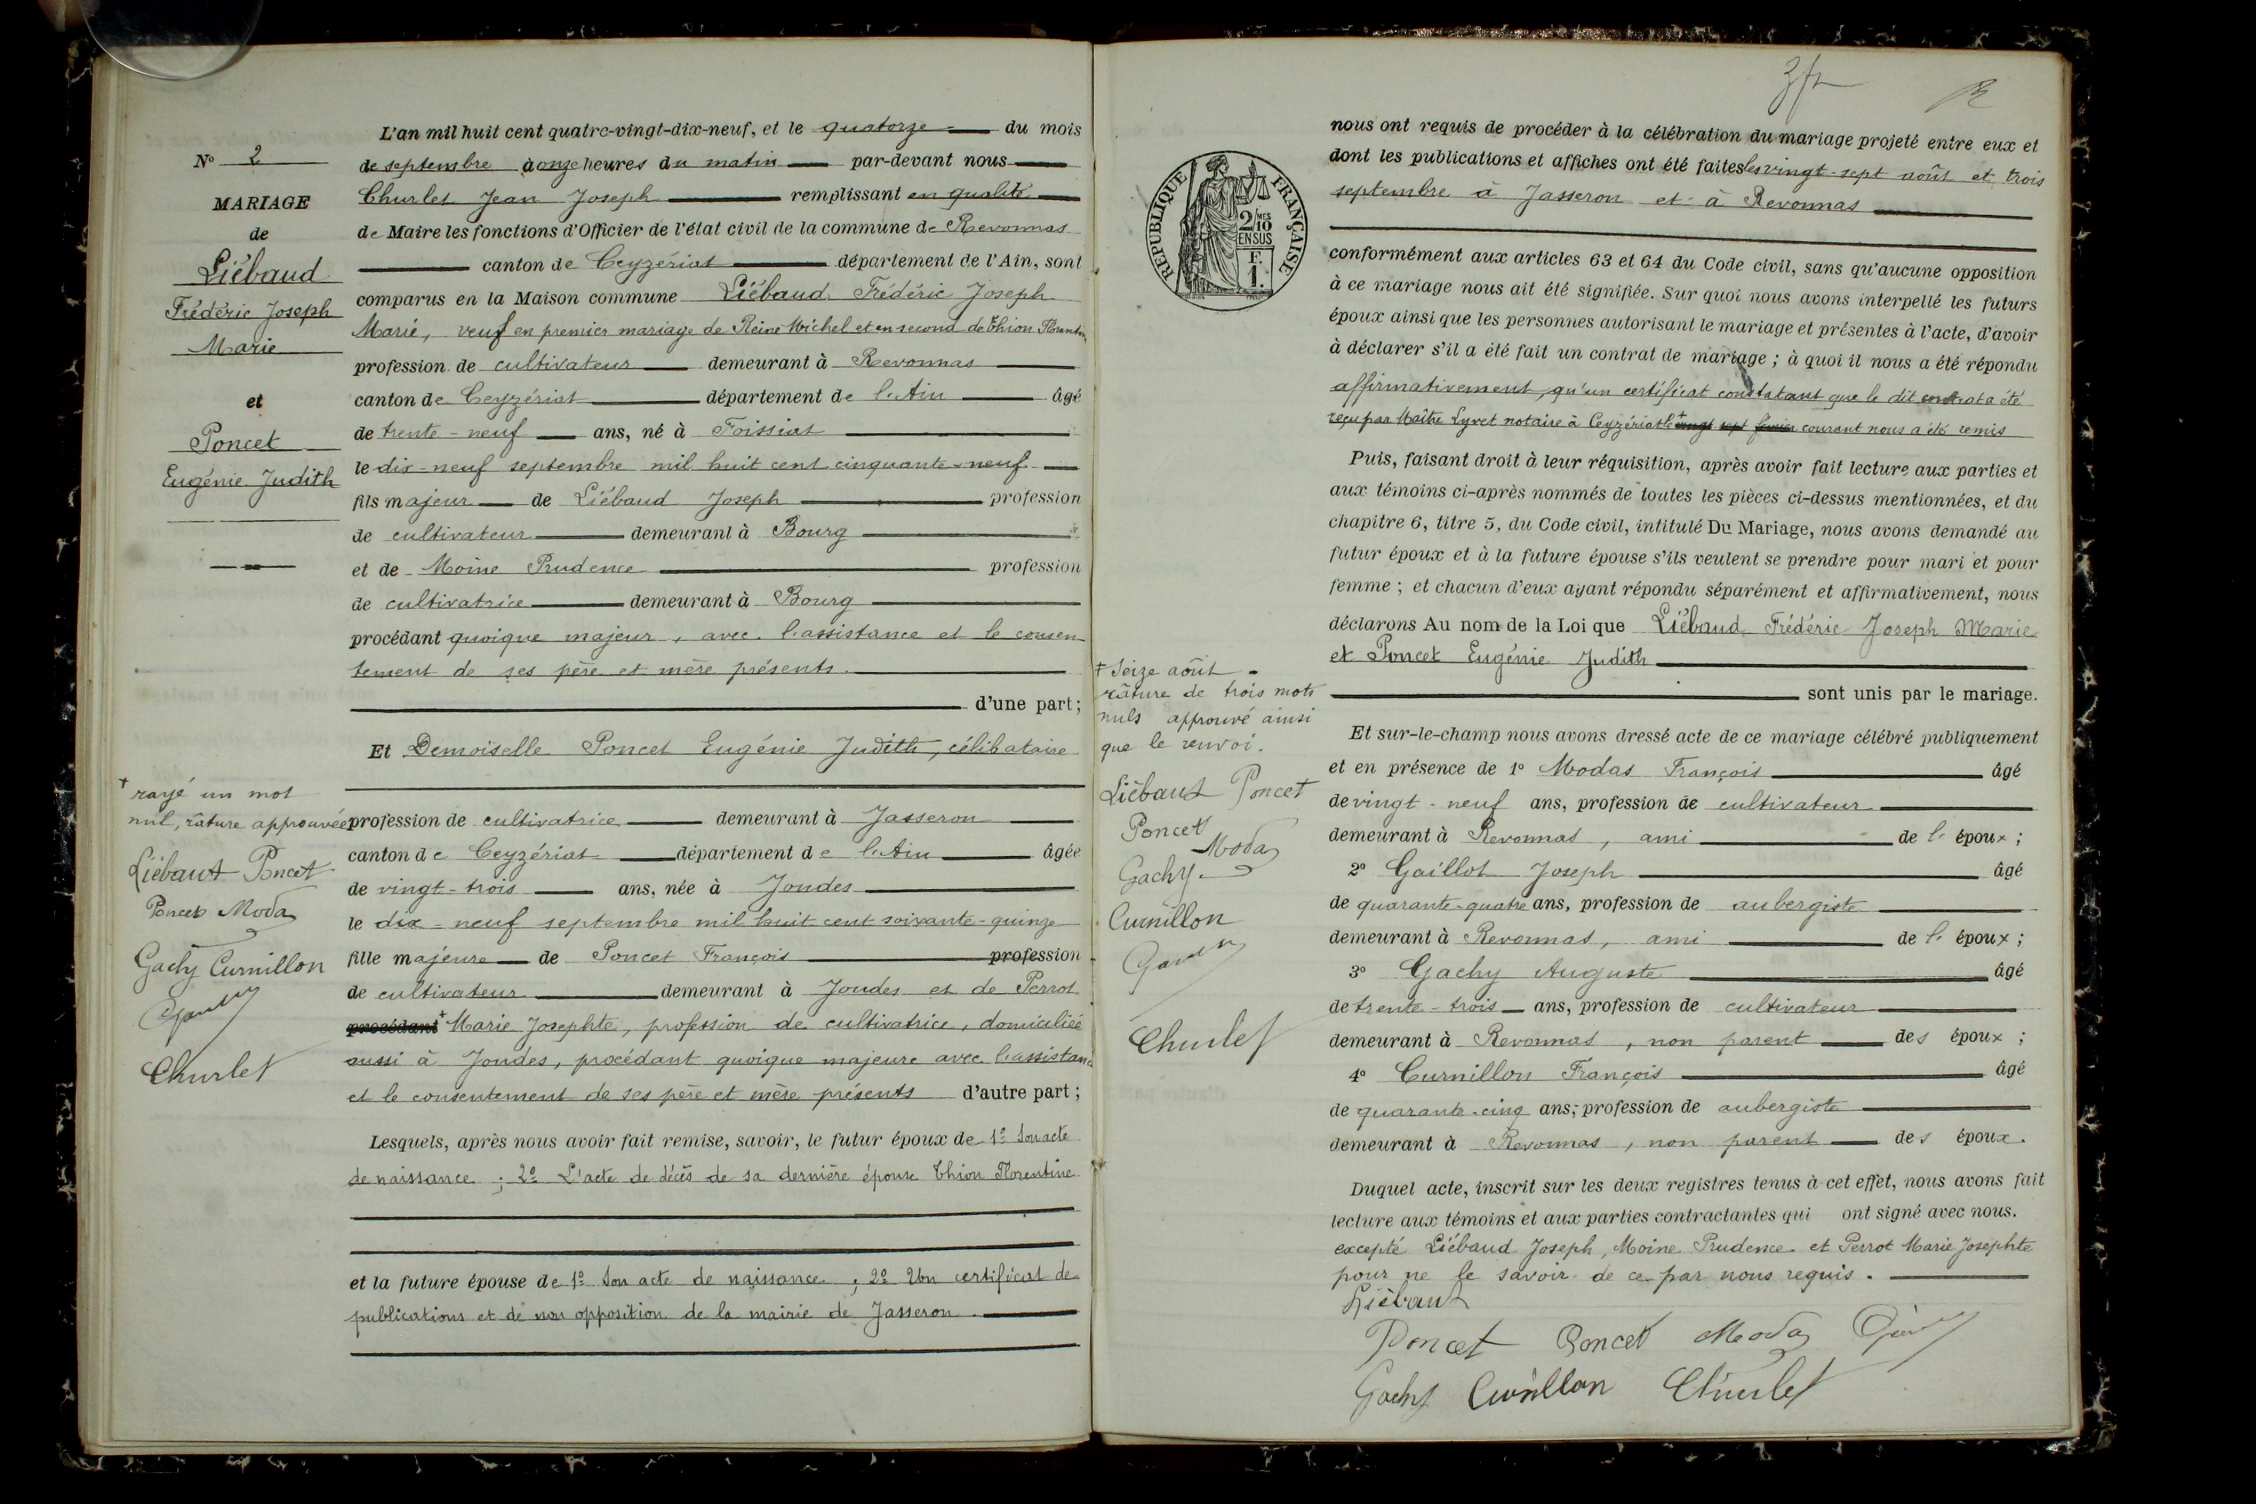 N° 2
MARIAGE
de
Liébaud
Frédéric Joseph
Marie
et
Poncet
Eugénie Judith
+ rayé un mot
nul, râture approuvée
Liébaud Poncet
Poncet Moda
Gachy Curnillon
Churlet
L'an mil huit cent quatre-vingt-dix-neuf, et le quatorze du mois
de septembre à onze heures du matin par-devant nous
Churlet Jean Joseph remplissant en qualité
de Maire les fonctions d'Officier de l'état civil de la commune de Revonnas
canton de Ceyzériat département de l'Ain, sont
comparus en la Maison commune Liébaud Frédéric Joseph
Marié, veuf en premier mariage de Reine Michel et en second de Thion Florentine
profession de cultivateur demeurant à Revonnas
canton de Ceyzériat département de l'Ain âgé
de trente-neuf ans, né à Foissiat
le dix-neuf septembre mil huit cent cinquante-neuf
fils majeur de Liébaud Joseph profession
de cultivateur demeurant à Bourg
et de Moine Prudence profession
de cultivatrice demeurant à Bourg
procédant quoique majeur, avec l'assistance et le consen
tement de ses père et mère présents.
d'une part;
Et Demoiselle Poncet Eugénie Judith, célibataire
profession de cultivatrice demeurant à Jasseron
canton de Ceyzériat département de l'Ain âgée
de vingt-trois ans, née à Joudes
le dix-neuf septembre mil huit cent soixante-quinze
fille majeure de Poncet François profession
de cultivateur demeurant à Joudes et de Perrot
procédant + Marie Josephte, profession de cultivatrice, domiciliée
aussi à Joudes, procédant quoique majeure avec l'assistance
et le consentement de ses père et mère présents d'autre part;
Lesquels, après nous avoir fait remise, savoir, le futur époux de 1° Son acte
de naissance; 2° L'acte de décès de sa dernière épouse Thion Florentine
et la future épouse de 1° Son acte de naissance; 2° Un certificat de
publications et de non opposition de la mairie de Jasseron.
3 fr
RÉPUBLIQUE FRANÇAISE
2/10 MES
EN SUS
F.
1.
+ Seize août
râture de trois mots
nuls approuvé ainsi
que le renvoi.
Liébaud Poncet
Poncet
Moda
Gachy
Curnillon
Churlet
nous ont requis de procéder à la célébration du mariage projeté entre eux et
dont les publications et affiches ont été faites les vingt-sept août et trois
septembre à Jasseron et à Revonnas
conformément aux articles 63 et 64 du Code civil, sans qu'aucune opposition
à ce mariage nous ait été signifiée. Sur quoi nous avons interpellé les futurs
époux ainsi que les personnes autorisant le mariage et présentes à l'acte, d'avoir
à déclarer s'il a été fait un contrat de mariage; à quoi il nous a été répondu
affirmativement, qu'un certificat constatant que le dit contrat a été
reçu par Maître Lyvet notaire à Ceyzériat le + vingt sept février courant nous a été remis
Puis, faisant droit à leur réquisition, après avoir fait lecture aux parties et
aux témoins ci-après nommés de toutes les pièces ci-dessus mentionnées, et du
chapitre 6, titre 5, du Code civil, intitulé Du Mariage, nous avons demandé au
futur époux et à la future épouse s'ils veulent se prendre pour mari et pour
femme; et chacun d'eux ayant répondu séparément et affirmativement, nous
déclarons Au nom de la Loi que Liébaud Frédéric Joseph Marie
et Poncet Eugénie Judith
sont unis par le mariage.
Et sur-le-champ nous avons dressé acte de ce mariage célébré publiquement
et en présence de 1° Modas François âgé
de vingt-neuf ans, profession de cultivateur
demeurant à Revonnas, ami de l' époux;
2° Gaillot Joseph âgé
de quarante-quatre ans, profession de aubergiste
demeurant à Revonnas, ami de l' époux;
3° Gachy Auguste âgé
de trente-trois ans, profession de cultivateur
demeurant à Revonnas, non parent des époux;
4° Curnillon François âgé
de quarante-cinq ans, profession de aubergiste
demeurant à Revonnas, non parent des époux.
Duquel acte, inscrit sur les deux registres tenus à cet effet, nous avons fait
lecture aux témoins et aux parties contractantes qui ont signé avec nous.
excepté Liébaud Joseph, Moine Prudence et Perrot Marie Josephte
pour ne le savoir de ce par nous requis.
Liébaud
Poncet Poncet Moda
Gachy Curnillon Churlet